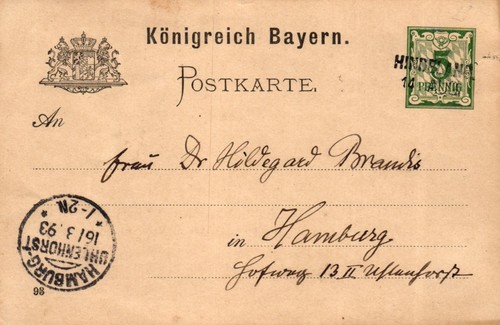 Königreich Bayern.
POSTKARTE.
5
PFENNIG
HINDELANG
14
An
Frau Dr Hildegard Brandis
in Hamburg
Hofweg 13 II Uhlenhorst
HAMBURG
UHLENHORST
16/3.93
* 1-2N *
93